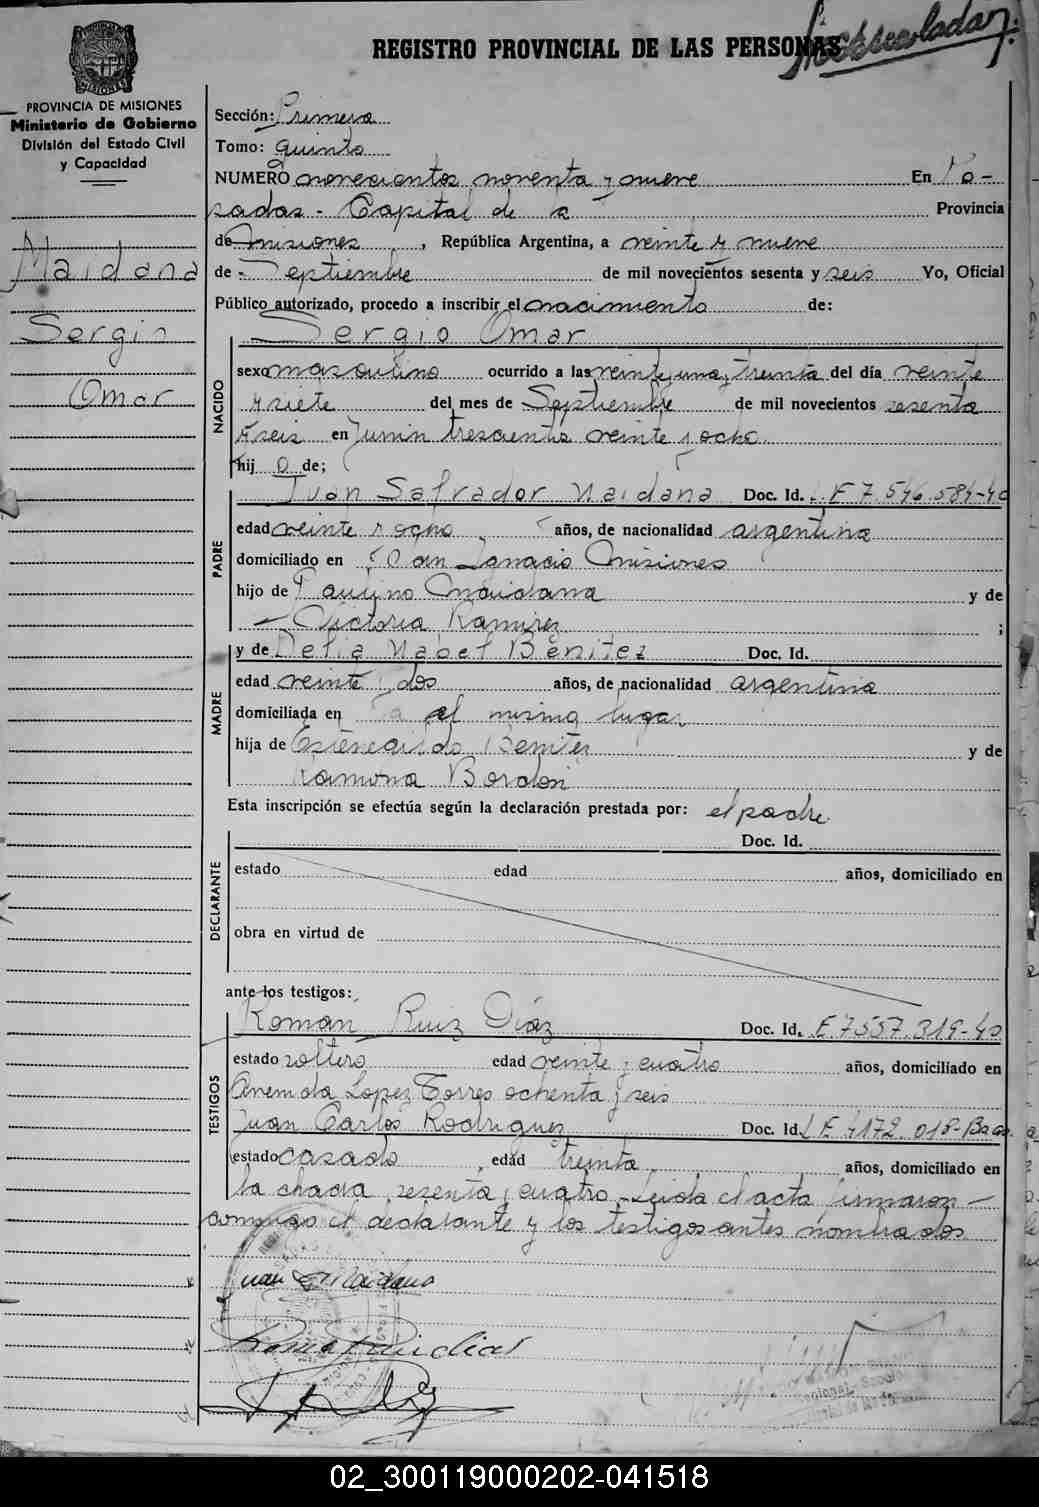 REGISTRO PROVINCIAL DE LAS PERSONAS
PROVINCIA DE MISIONES
Ministerio de Gobierno
División del Estado Civil
y Capacidad
Maidana
Sergio
Omar
Sección: Primera
Tomo: Quinto
NUMERO novecientos noventa y nueve En Po-
sadas - Capital de la Provincia
de Misiones, República Argentina, a veinte y nueve
de Septiembre de mil novecientos sesenta y seis Yo, Oficial
Público autorizado, procedo a inscribir el nacimiento de:
Sergio Omar
NACIDO
sexo masculino ocurrido a las veinte y una y treinta del día veinte
y siete del mes de Septiembre de mil novecientos sesenta
y seis en Junin trescientos veinte y ocho
hijo de;
PADRE
Juan Salvador Maidana Doc. Id. L E 7.546.584-40
edad veinte y ocho años, de nacionalidad argentina
domiciliado en San Ignacio Misiones
hijo de Paulino Maidana y de
Victoria Ramirez ;
MADRE
y de Delia Mabel Benitez Doc. Id.
edad veinte y dos años, de nacionalidad argentina
domiciliada en el mismo lugar
hija de Benitez y de
Ramona Bordon
Esta inscripción se efectúa según la declaración prestada por: el padre
DECLARANTE
Doc. Id.
estado edad años, domiciliado en
obra en virtud de
ante los testigos:
TESTIGOS
Roman Ruiz Diaz Doc. Id. E 7557.319-40
estado soltero edad veinte y cuatro años, domiciliado en
Avenida Lopez Torres ochenta y seis
Juan Carlos Rodriguez Doc. Id. L E 4172.018-
estado casado, edad treinta años, domiciliado en
la chacra sesenta y cuatro - Leida el acta firmaron -
conmigo el declarante y los testigos antes nombrados
Juan S Maidana
Roman Ruiz Diaz
02_300119000202-041518